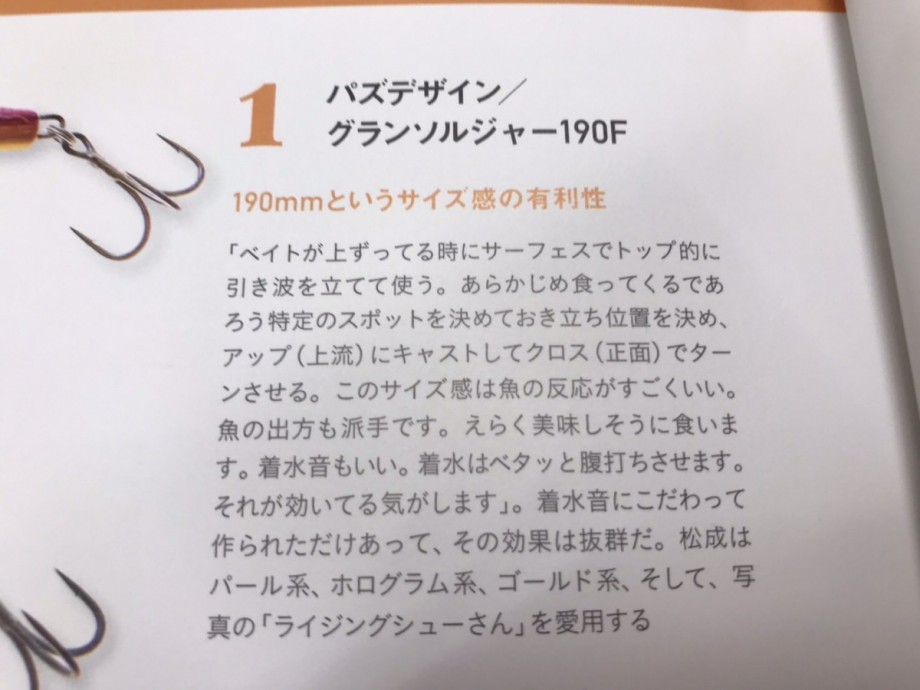 1
パズデザイン／
グランソルジャー190F
190mmというサイズ感の有利性
「ベイトが上ずってる時にサーフェスでトップ的に
引き波を立てて使う。あらかじめ食ってくるであ
ろう特定のスポットを決めておき立ち位置を決め、
アップ（上流）にキャストしてクロス（正面）でター
ンさせる。このサイズ感は魚の反応がすごくいい。
魚の出方も派手です。えらく美味しそうに食いま
す。着水音もいい。着水はベタッと腹打ちさせます。
それが効いてる気がします」。着水音にこだわって
作られただけあって、その効果は抜群だ。松成は
パール系、ホログラム系、ゴールド系、そして、写
真の「ライジングシューさん」を愛用する